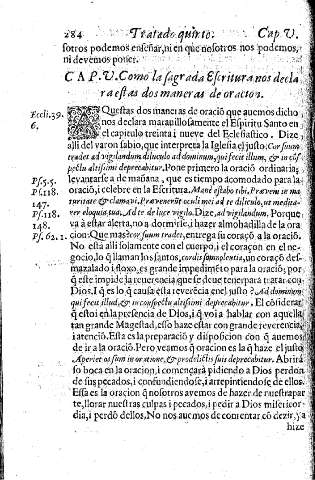 284 Tratado quinto. Cap V.
sotros podemos enseñar, ni en que nosotros nos podemos,
ni devemos poner.
CAP. V. Como la sagrada Escritura nos decla
ra estas dos maneras de oracion.
Eccli. 39.
6.
AQuestas dos maneras de oració que auemos dicho
nos declara marauillosamente el Espiritu Santo en
el capitulo treinta i nueve del Eclesiastico. Dize
alli del varon sabio, que interpreta la Iglesia el justo. Cor suum
tradet ad vigilandum diluculo ad dominum, qui fecit illum, & in cōs
pectu altissimi deprecabitur. Pone primero la oració ordinaria;
levantarse a de mañana, que es tiempo acomodado para la
oració, i celebre en la Escritura. Manè estabo tibi, Prævem in ma
turitate & clamavi. Prævenerūt oculi mei ad te diluculo, ut medita-
rer eloquia tua. Ad te de luce vigilo. Dize, ad vigilandum. Porque
va a estar alerta, no a dormirse, i hazer almohadilla de la ora
cion: Que mas? cor suum tradet, entrega su coraçō a la oració.
Ps. 5. 5.
Ps. 118.
147.
Ps. 118.
148.
Ps. 62. 2.
No està alli solamente con el cuerpo, i el coraçon en el ne-
gocio, lo q̃ llaman los santos, cordis somnolentia, un coraçō des-
mazalado i floxo, es grande impedimēto para la oració; por
q̃ este impide la reverencia que se deue tener para tratar con
Dios. I q̃ es lo q̃ causa esta reverēcia enel justo? Ad dominum
qui fecit illud, & in conspectu altissimi deprecabitur. El cōsiderar
q̃ estoi en la presencia de Dios, i q̃ voi a hablar con aquella
tan grande Magestad, esso haze estar con grande reverencia,
i atenció. Esta es la preparació y disposicion con q̃ auemos
de ir a la oració. Pero veamos q̃ oracion es la q̃ haze el justo.
Aperiet os suum in oratione, & pro delictis suis deprecabitur. Abrirá
so boca en la oracion, i començará pidiendo a Dios perdon
de sus pecados, i confundiendose, i arrepintiendose de ellos.
Essa es la oracion q̃ nosotros avemos de hazer de nuestra par
te, llorar nuestras culpas i pecados, i pedir a Dios misericor
dia, i perdō dellos, No nos auemos de contentar cō dezir, ya
hize